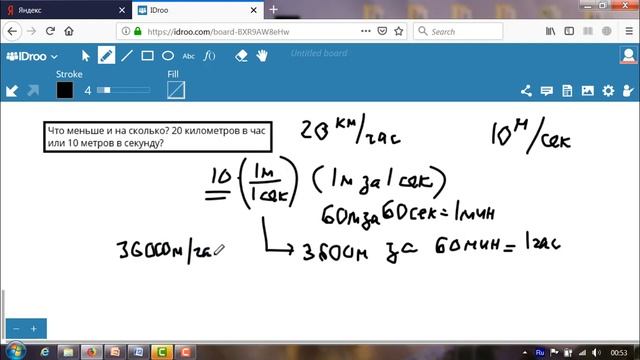 Яндекс
IDroo
https://idroo.com/board-BXR9AW8eHw
IDroo
Abc
f(x)
Untitled board
Stroke
Fill
4
Что меньше и на сколько? 20 километров в час
или 10 метров в секунду?
20 км/час
10 м/сек
10 · (1м/1сек) (1м за 1 сек)
60м за 60 сек = 1 мин
36000м/ча
3600м за 60 мин = 1 час
Ru
00:53